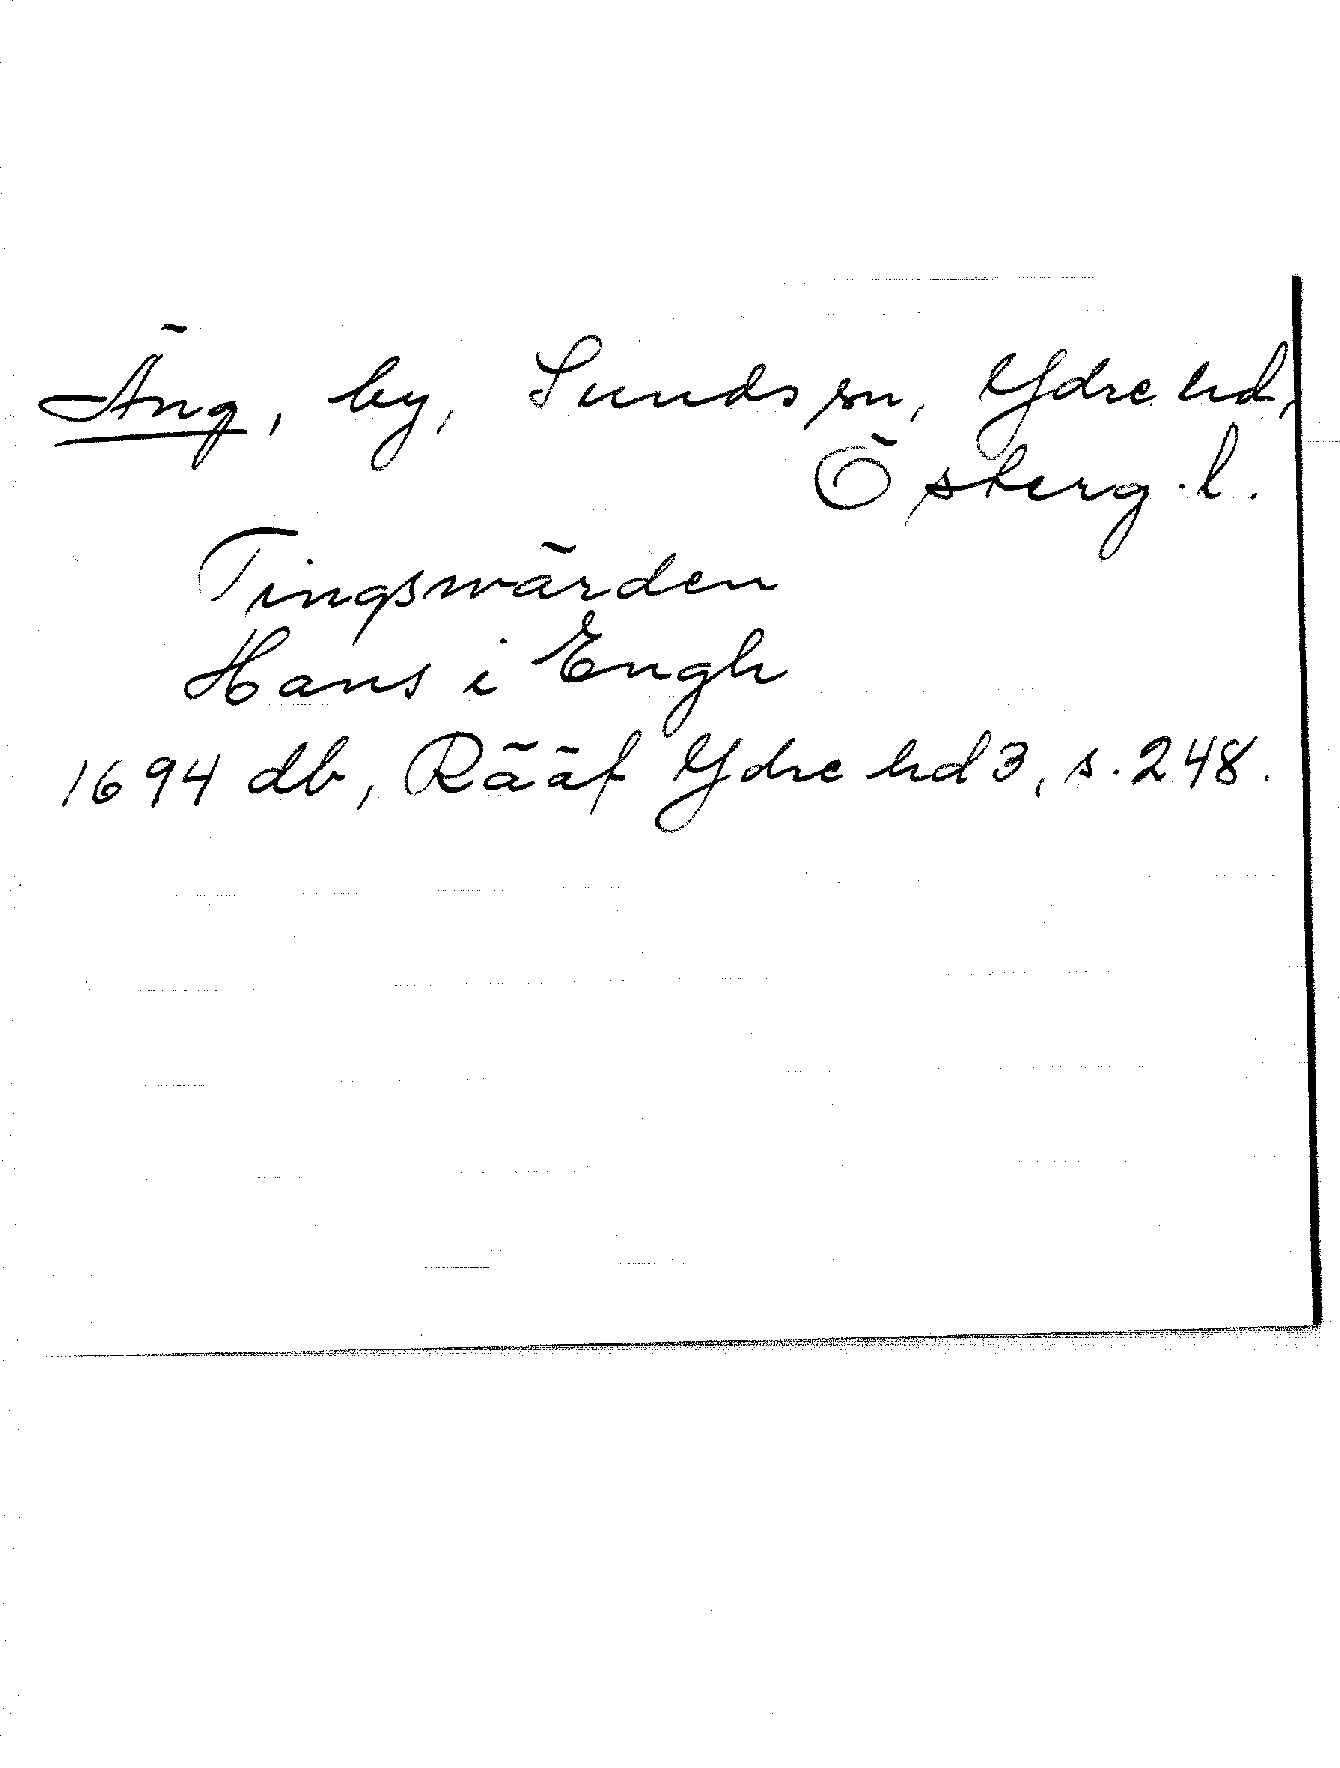 Äng, by, Sunds sn, Ydre hd,
Österg. l.
Tingswärden
Hans i Engh
1694 db, Rääf Ydre hd 3, s. 248.